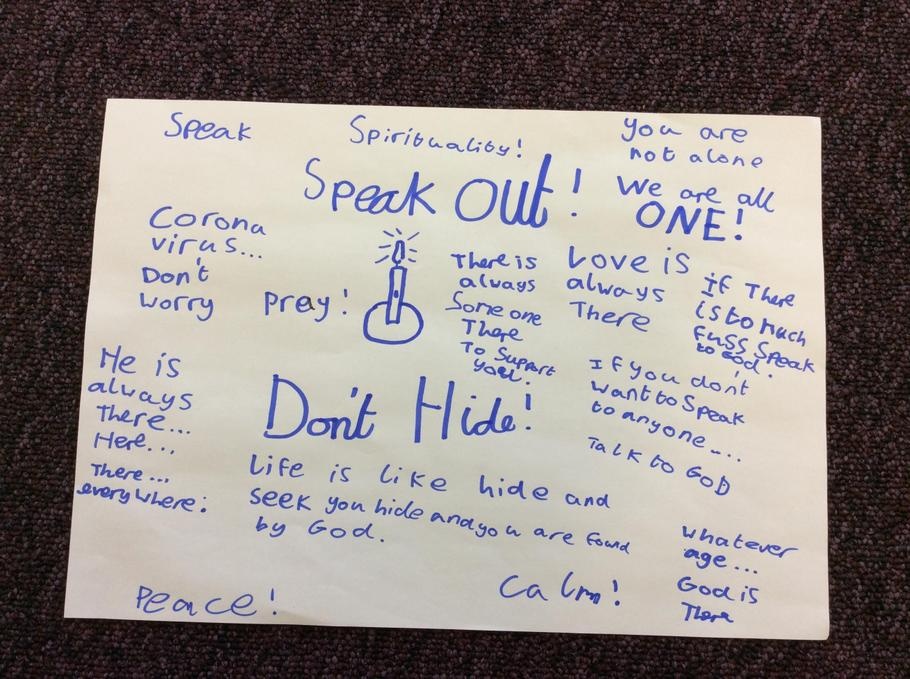 Speak
Spirituality!
you are
not alone
Speak out!
We are all
ONE!
Corona
virus...
Don't
worry
pray!
There is
always
Someone
There
To Support
you!
Love is
always
There
if There
is to much
fuss Speak
to God!
He is
always
There...
Here...
There...
everywhere:
Don't Hide!
If you don't
want to Speak
to anyone....
Talk to GOD
Life is like hide and
seek you hide and you are found
by God.
whatever
age...
God is
There
Peace!
Calm!